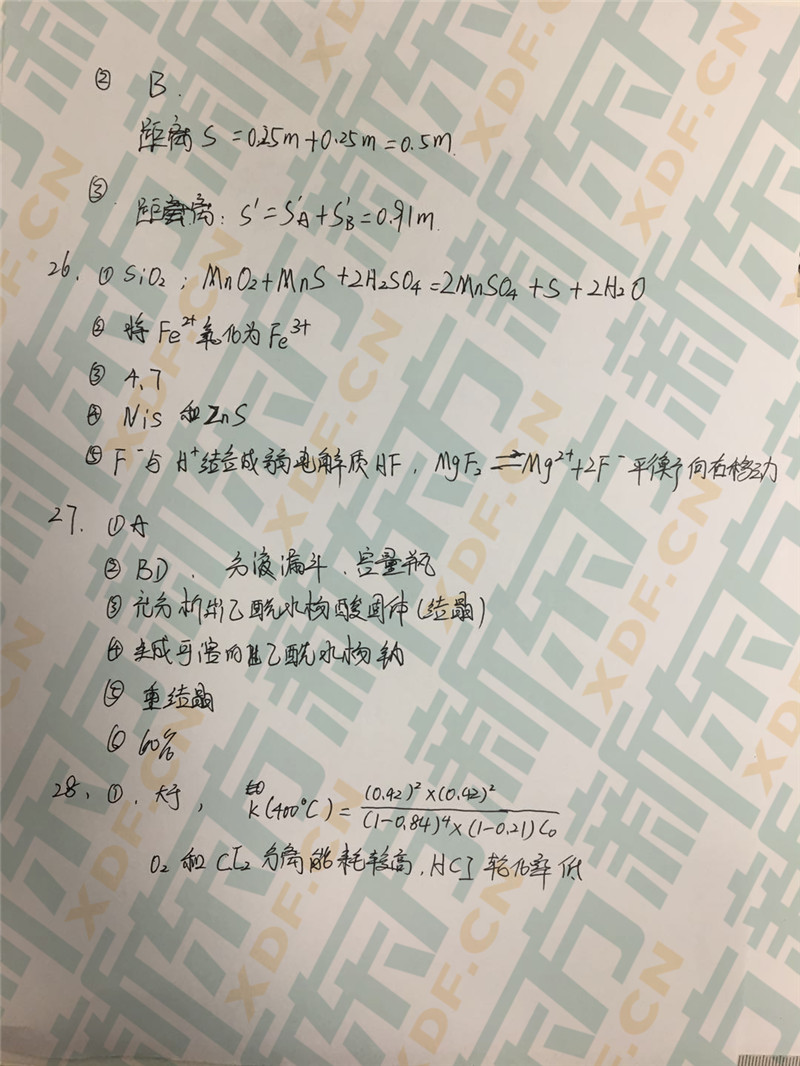 ② B.
距离 S = 0.25m + 0.25m = 0.5m.
③ 距离: S' = S'A + S'B = 0.91m.
26. ① SiO₂ ; MnO₂ + MnS + 2H₂SO₄ = 2MnSO₄ + S + 2H₂O
② 将 Fe²⁺氧化为Fe³⁺
③ 4.7
④ NiS 和 ZnS
⑤ F⁻与 H⁺结合成弱电解质HF, MgF₂ ⇌ Mg²⁺+2F⁻ 平衡向右移动
27. ① A
② BD . 分液漏斗、容量瓶
③ 充分析出乙酰水杨酸固体(结晶)
④ 生成可溶的乙酰水杨酸钠
⑤ 重结晶
⑥ 60%
28. ①. 大于, K(400°C) = (0.42)²×(0.42)² / (1-0.84)⁴×(1-0.21)C₀
O₂ 和 Cl₂ 分离能耗较高, HCl 转化率低
新东方 XDF.CN